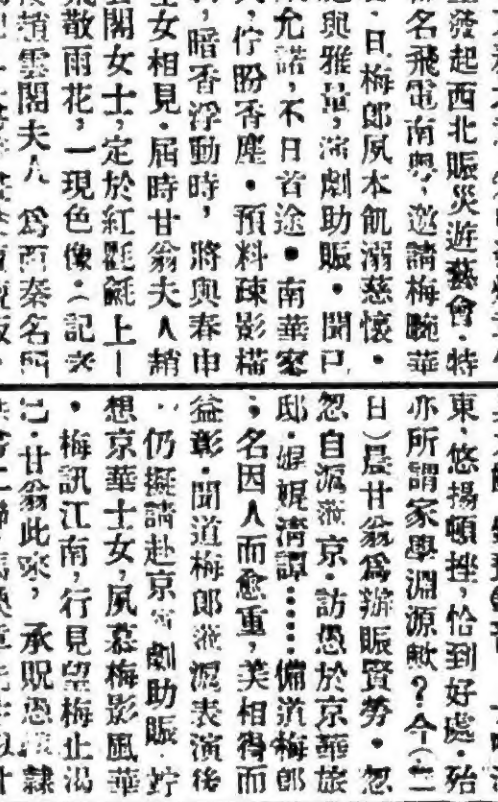 發起西北賑災遊藝會·特
名飛電南粵，邀請梅畹華
·日梅郎夙本飢溺慈懷·
與雅量，演劇助賑·聞已
允諾，不日首途·南華客
，佇盼香塵·預料疎影橫
，暗香浮動時，將與春申
女相見·屆時甘翁夫人趙
雲閣女士，定於紅氍毹上—
散雨花，一現色像·（記
趙雲閣夫人 爲西秦名
東，悠揚頓挫，恰到好處·殆
亦所謂家學淵源歟？今（二
日）晨甘翁爲辦賑賢勞·忽
忽自滬蒞京·訪愚於京華旅
邸·娓娓清譚……備道梅郎
；名因人而愈重，美相得而
益彰·聞道梅郎蒞滬表演後
·仍擬請赴京 劇助賑·
想京華士女，夙慕梅影風華
·梅訊江南，行見望梅止渴
已·甘翁此來，承貺恐 隸